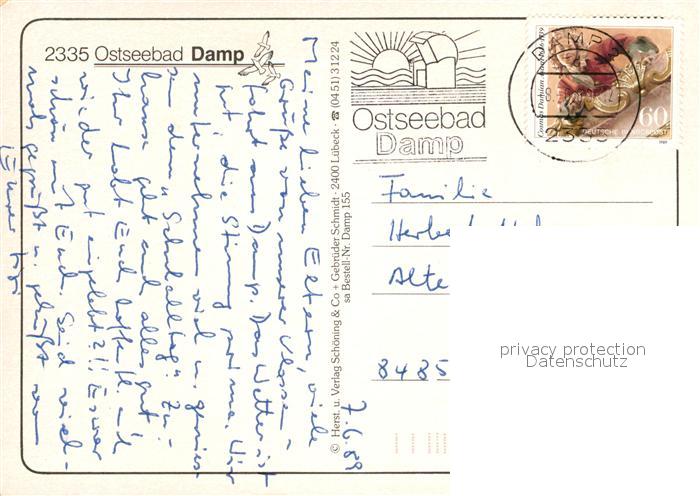 2335 Ostseebad Damp
Meine lieben Eltern, viele
Grüße von unserer Klassen-
fahrt aus Damp. Das Wetter ist
gut, die Stimmung prima. Wir
unternehmen viel u. genies-
sen den "Schulalltag". Zu-
hause geht auch alles gut.
Ihr habt Euch hoffentlich
wieder gut eingelebt?!! Es war
schön mit Euch. Seid viel-
mals gegrüßt u. geküßt von
Eurer
7.6.89
© Herst. u. Verlag Schöning & Co + Gebrüder Schmidt · 2400 Lübeck · ☎ (0451) 31224
sa Bestell-Nr. Damp 155
Ostseebad
Damp
DAMP
2335
Cosmas Damian
60
DEUTSCHE BUNDESPOST
1989
Familie
Alte
8485
privacy protection
Datenschutz